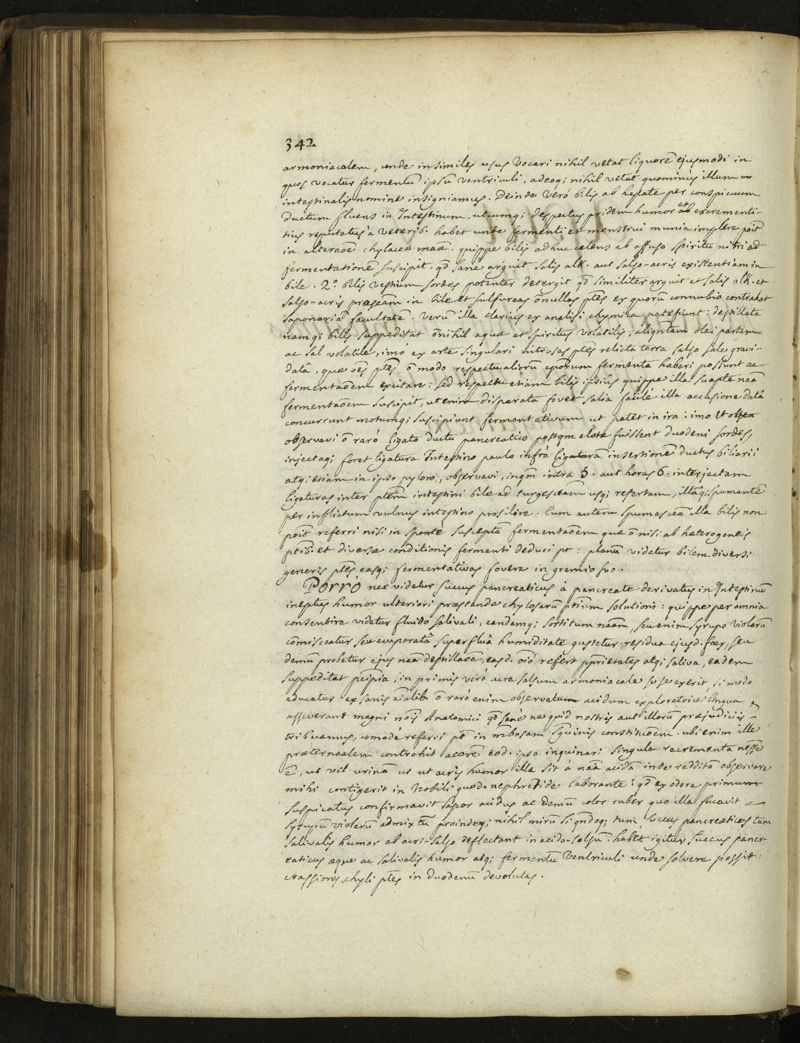 342
armoniacalem, unde in similes usus vocari nihil vetat liquorē ejusmodi in
quos vocatur fermentū ipsū ventriculi, adeoq; nihil vetat quominus illum
intestinalis nomine insigniamus. Deinde verò bilis ab hepate per conspicuum
ductum fluens in Intestinum, utcumq; despectus pridem humor et ab excrementi-
tius reputatus a veterib. habet unde fermenti et menstrui munia implere poīt
in alteraōe chylaceæ maæ. quippe bilis adhuc calens ab affuso spiritu nitri ad
fermentationē suscipit. qd sane arguit salis alk. aut salso-acris existentiam in
bile. 2.° bilis vestium sordes potenter detergit qd similiter arguit et salis alk. et
salso-acris præseām in bile et sulfureas ōnullas ptēs ex quorū connubio contrahat
saponariā facultatē. verū illa clariùs ex analisi chymica patefiunt: destillata
namq; bilis suppeditat ōnihil aquæ et spiritus volatilis, aliqntam olei partem
ac sal volatile, imo ex arte singulari nitrosas ptēs relicta terra salso sale gravi-
datā. quæ oēs ptēs ō modo respectu aliorū corporum fermenta haberi possunt ac
fermentaōem excitare: sed respectu etiam bilis ipsius quippe illa suapte naā
fermentaōem suscipit, ut enim disparata fovet salia facilè illa occasione datâ
concurrunt motumq; suscipiunt fermentativum ut patet in ira: imo et
observavi ō rarò ligato ductu pancreatico postqm elotæ fuissent duodeni sordes,
injectaq; foret ligatura Intestino paulo infrà insertionē ductus biliarii
atq; etiam in ipso pyloro, observavi, inqm intra 5. aut horas 6. interjectam
ligaturas inter ptem intestini bile ad turgesceām usq; refertam, illāq; spumantē
per inflictum vulnus intestino prosilire. Cum autem spumescēa illa bilis non
poīt referri nisi in spontè susceptā fermentaōem quæ ō nisi ab heterogeneis
ptib. et diversæ conditionis fermenti deduci pt: planū videtur bilem diversi
generis ptēs easq; fermentativas fovere in gremio suo.
Porrò nec videtur succus pancreaticus à pancreate derivatus in Intestinū
ineptus humor ulteriori præstandæ chylosarū ptium solutioni: quippe per omnia
consentire videtur fluido salivali, eandemq; sortitum naām, seu enim syrupo violarū
cōmisceatur seu evaporatâ superfluâ humiditate gustetur residua ejusd. fæx, seu
demū probetur ejus naā destillaōe, easd. oīō refert pprietates atq; saliva, eadem
suppeditat pcipia, in primis verò acre salsum armoniacale se se exerit, si modo
educatur ex sanis aīalib. ō rarò enim observatum acidum exploratrice lingua
asseverant magni nōis Anatomici qd sanè ne quid nostris aut illorū præjudiciis
tribuamus, cōmodè referri pt in mbosam sguinis constituōem. ubi enim ille
præternaālem contrahit acorē eod. ipso inquinari singula recrementa nesse
ē, ut vel urinā ut ut acris humor illa sit à naā acidā inde redditā observare
mihi contigerit in nobili quod. nephretide laborante: qd ex odore primum
suspicatus confirmavit sapor acidus ac demū color ruber quo illa fucavit
syrupū violarū admixtū proindeq; nihil mirū si qndoq; tum succus pancreaticus tum
salivalis humor ab acri-salso deflectant in acido-salsū. habet igitur succus pancr-
eaticus æque ac salivalis humor atq; fermentū ventriculi unde solvere possit
crassioris chyli ptēs in duodenū devolutas.